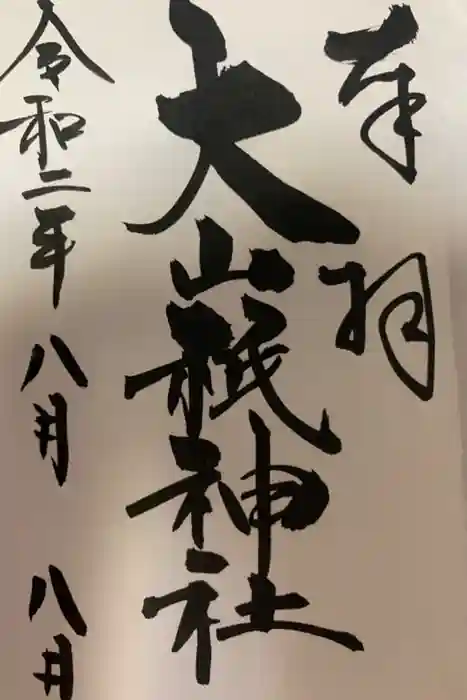 奉拝
大山祇神社
令和二年八月八日